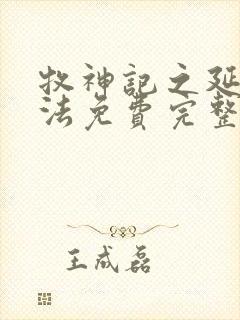 牧神记之延
法免费完整
王成磊